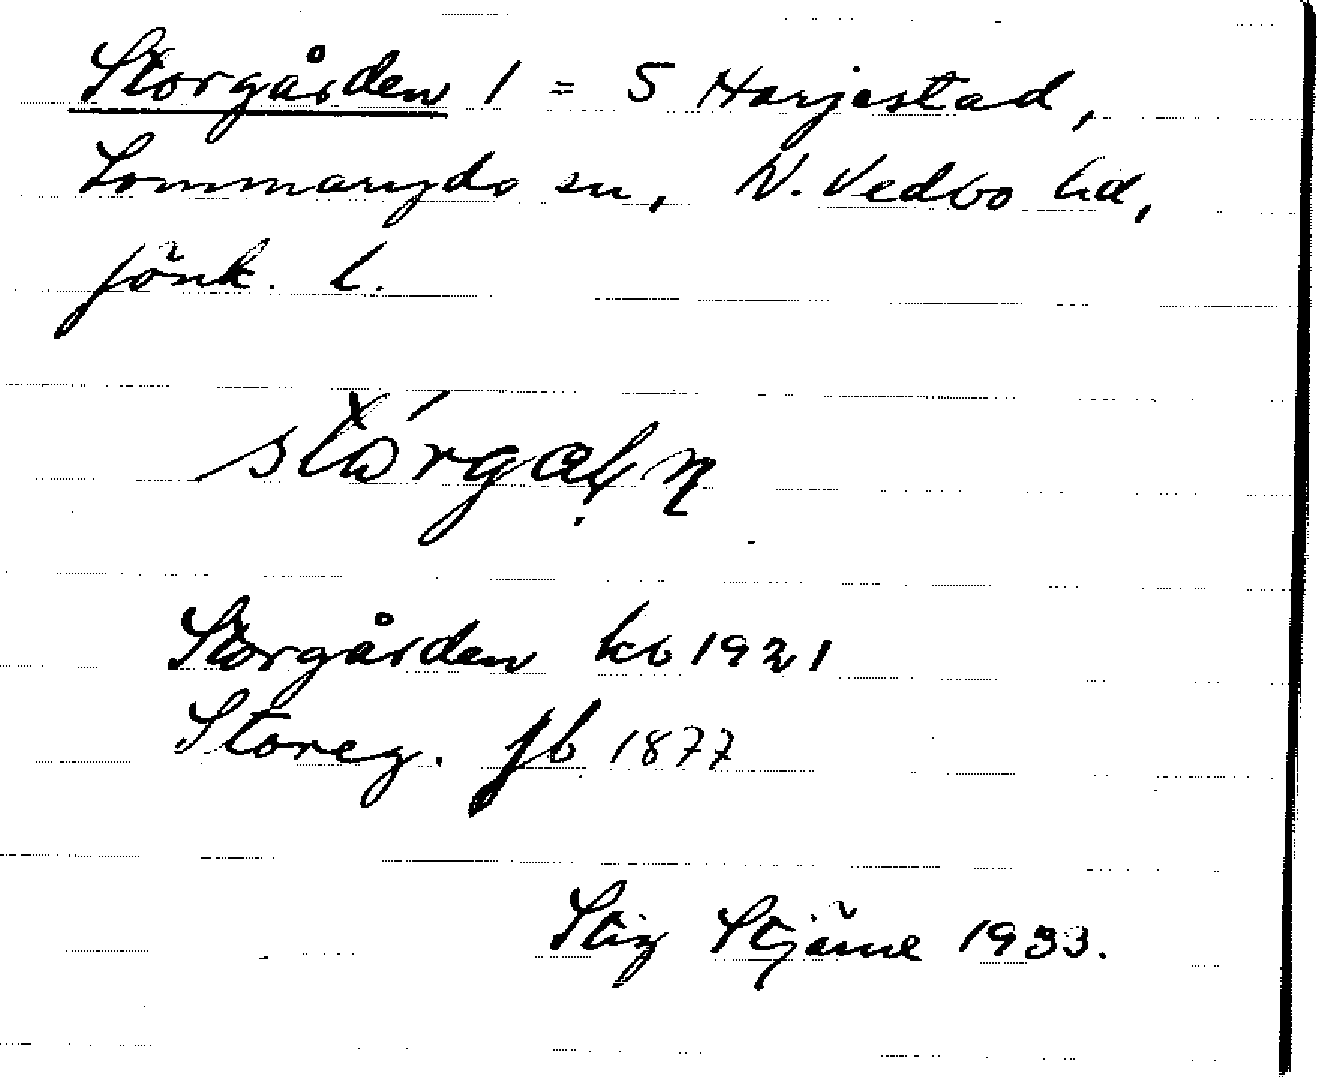 Storgården 1 = S Harjestad,
Lommaryds sn, N. Vedbo hd,
Jönk. l.
Storgården kb 1921
Storeg. Jb 1877
Stig Stjärne 1933.